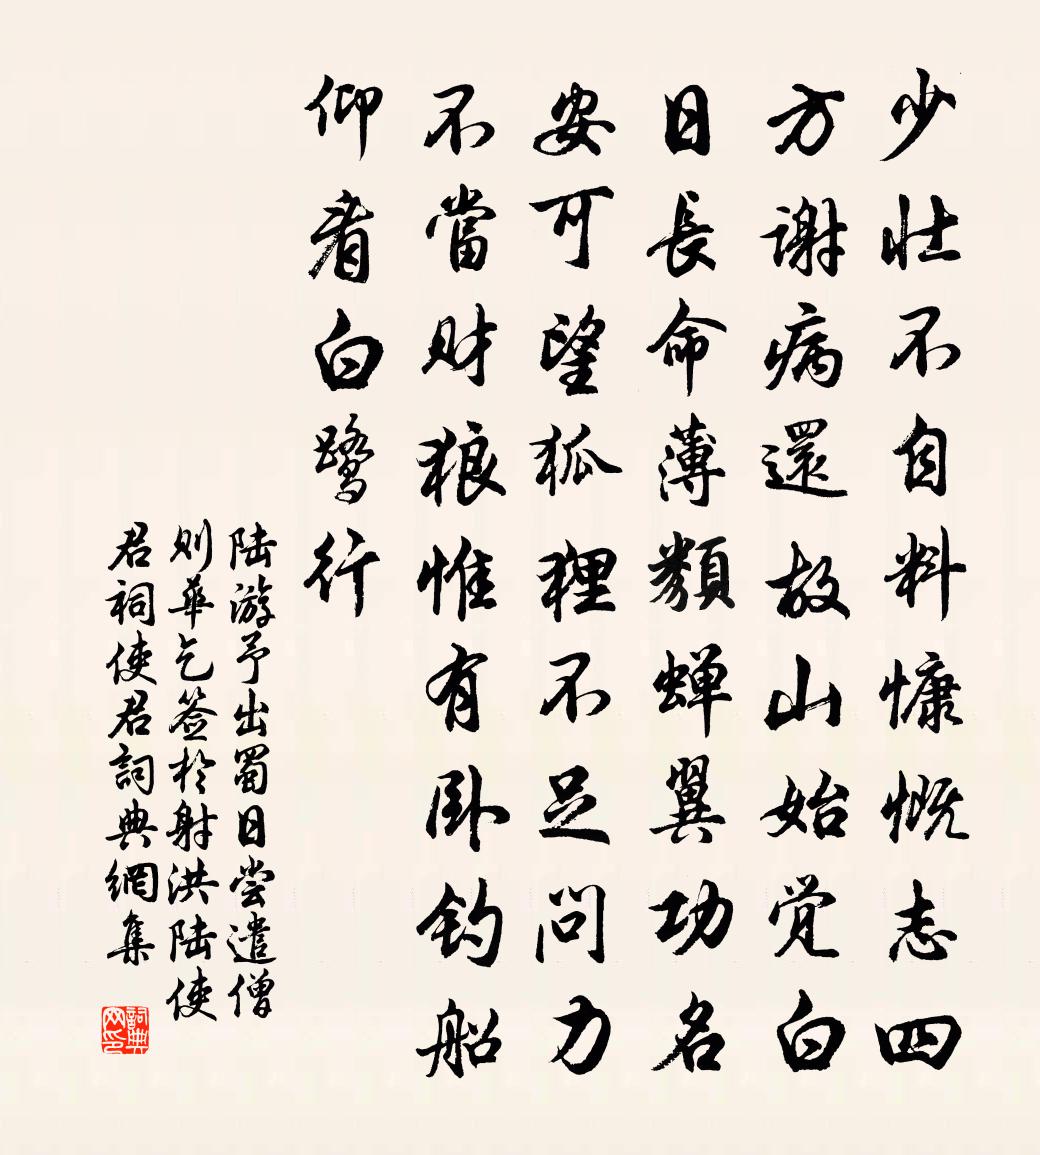 少壮不自料慷慨志四
方谢病還故山始觉白
日長命薄類蝉翼功名
安可望狐狸不足问力
不當财狼惟有卧钓船
仰看白鹭行
陆游予出蜀日尝遣僧
则华乞签於射洪陆使
君祠使君詞典網集
詞典网印